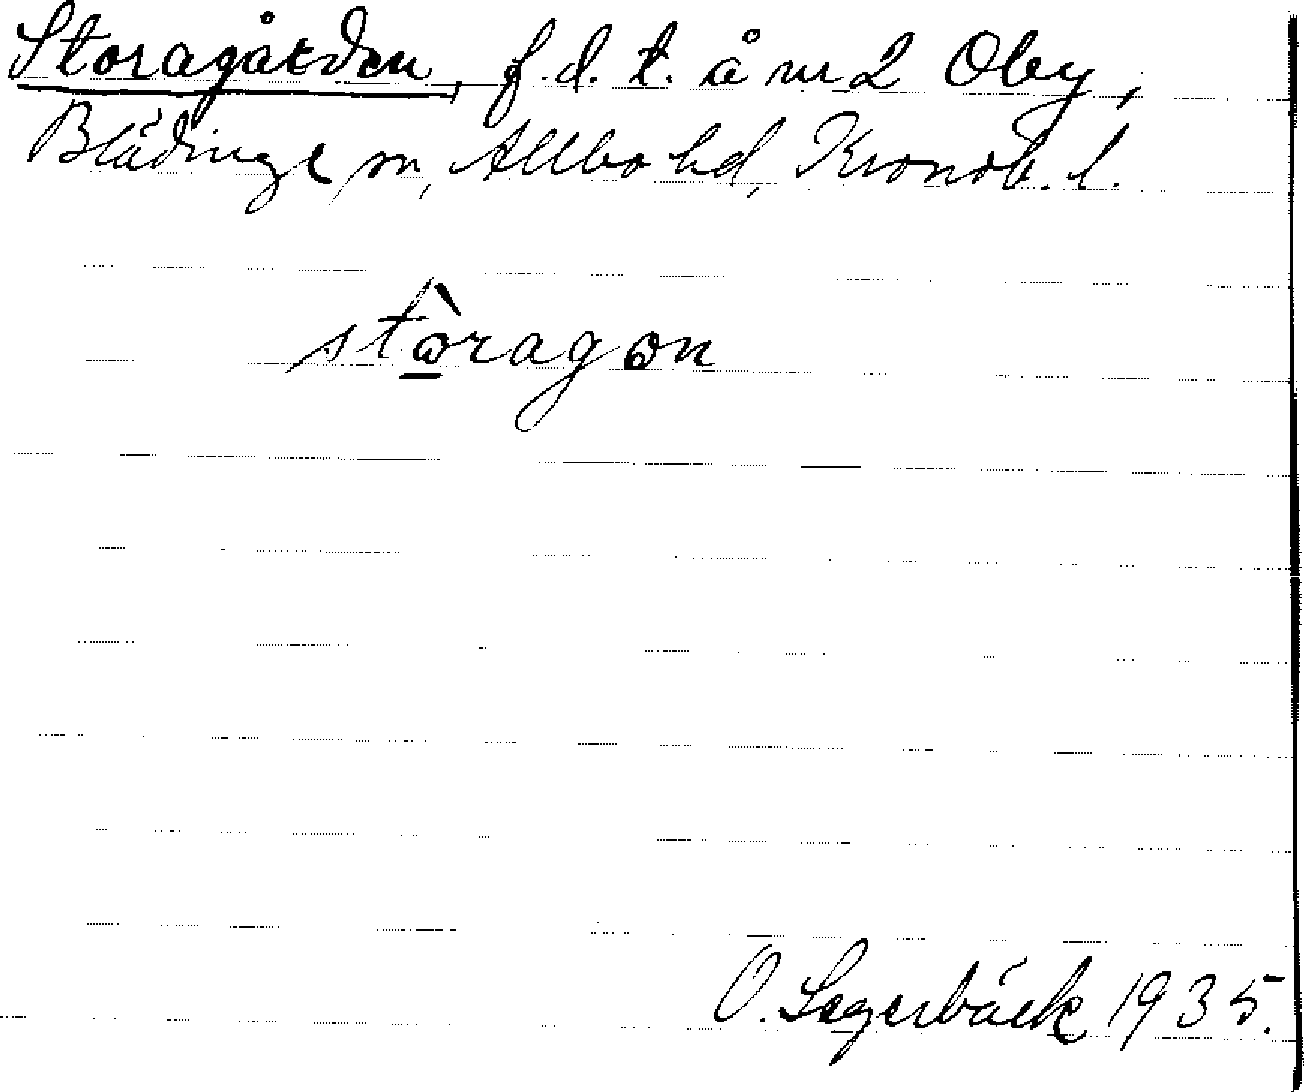 Storagården, f.d. t. å nr 2 Oby,
Blädinge sn, Allbo hd, Kronob. l.
stòragon
O. Lagerbäck 1935.